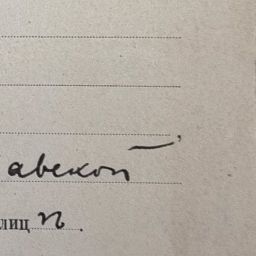 —,
авской
лиц п.